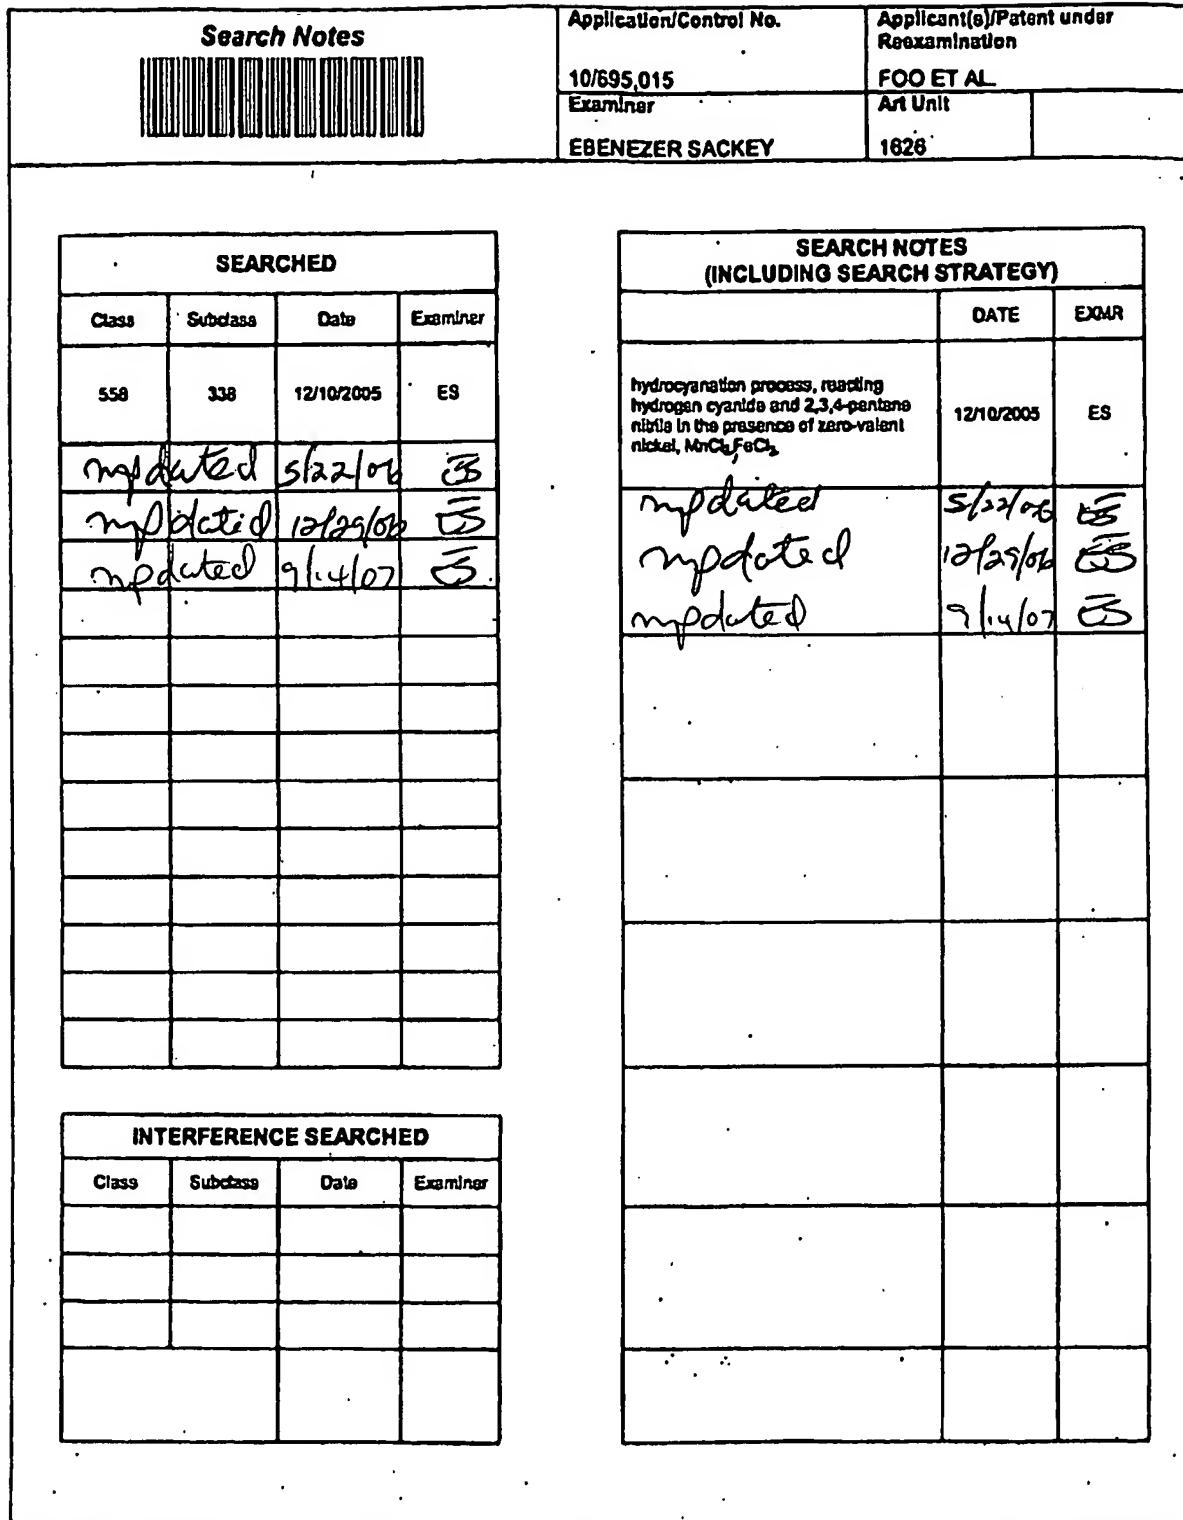 Search Notes
Application/Control No.
Applicant(s)/Patent under
Reexamination
10/695,015
FOO ET AL.
Examiner
Art Unit
EBENEZER SACKEY
1626
SEARCHED
Class Subclass Date Examiner
558 338 12/10/2005 ES
updated 5/22/06 ES
updated 12/29/06 ES
updated 9/14/07 ES
INTERFERENCE SEARCHED
Class Subclass Date Examiner
SEARCH NOTES
(INCLUDING SEARCH STRATEGY)
DATE EXMR
hydrocyanation process, reacting
hydrogen cyanide and 2,3,4-pentane
nitrile in the presence of zero-valent
nickel, MnCl2,FeCl2
12/10/2005 ES
updated 5/22/06 ES
updated 12/29/06 ES
updated 9/14/07 ES